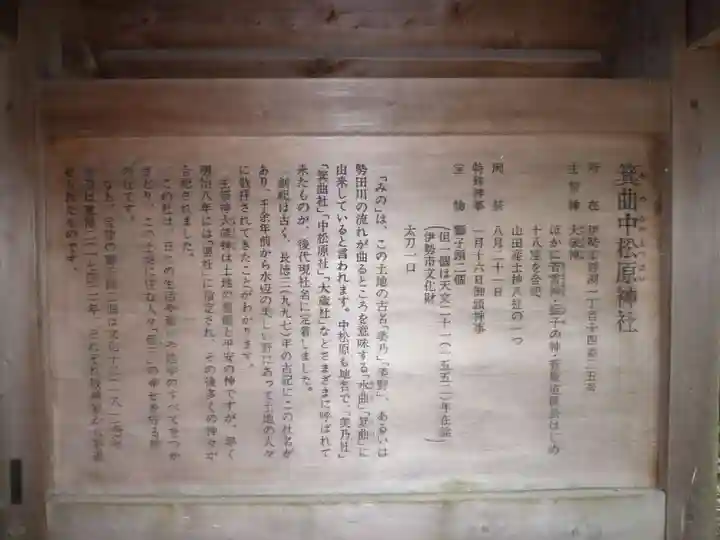 箕曲中松原神社
所在 伊勢市岩渕一丁目十四番二五号
主祭神 大歳神
ほかに
十八座を合祀
山田産土神八社の一つ
例祭 八月二十一日
特殊神事 一月十六日御頭神事
宝物 獅子頭二個
(但一個は天文二十一(一五五二)年在銘)
(伊勢市文化財)
太刀一口
「みの」は、この土地の古名「美乃」「美野」、あるいは
勢田川の流れが曲るところを意味する「水曲」「箕曲」に
由来していると言われます。中松原も地名で、「美乃社」
「箕曲社」「中松原社」「大歳社」などとさまざまに呼ばれて
来たものが、後代現社名に定着しました。
創祀は古く、長徳三(九九七)年の古記にこの社名が
あり、千余年前から水辺の美しい野にあって土地の人々
に敬拝されてきたことがわかります。
主祭神大歳神は土地の
と平安の神ですが、早く
明治八年には
に指定され、その後多くの神々が
合祀されました。
この社は、日々の生活や
のすべてをつか
さどり、この土地に住む人々
の幸せを守る神
なのです。
なお、宝物の獅子頭二個は
せられたものです。